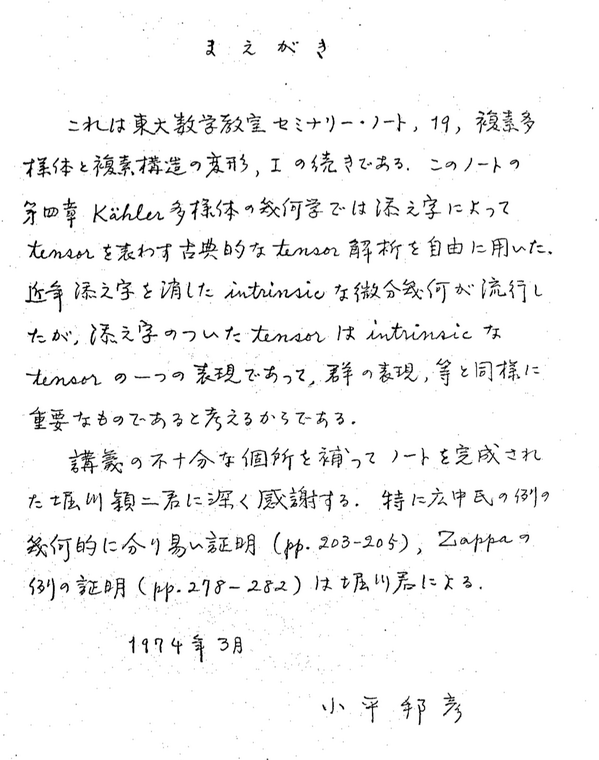 まえがき
これは東大数学教室セミナリー・ノート, 19, 複素多
様体と複素構造の変形, I の続きである. このノートの
第四章 Kähler 多様体の幾何学では添え字によって
tensor を表わす古典的な tensor 解析を自由に用いた.
近年添え字を消した intrinsic な微分幾何が流行し
たが, 添え字のついた tensor は intrinsic な
tensor の一つの表現であって, 群の表現, 等と同様に
重要なものであると考えるからである.
講義の不十分な個所を補ってノートを完成され
た堀川穎二君に深く感謝する. 特に広中氏の例の
幾何的に分り易い証明 (pp. 203-205), Zappa の
例の証明 (pp. 278-282) は堀川君による.
1974年3月
小平邦彦